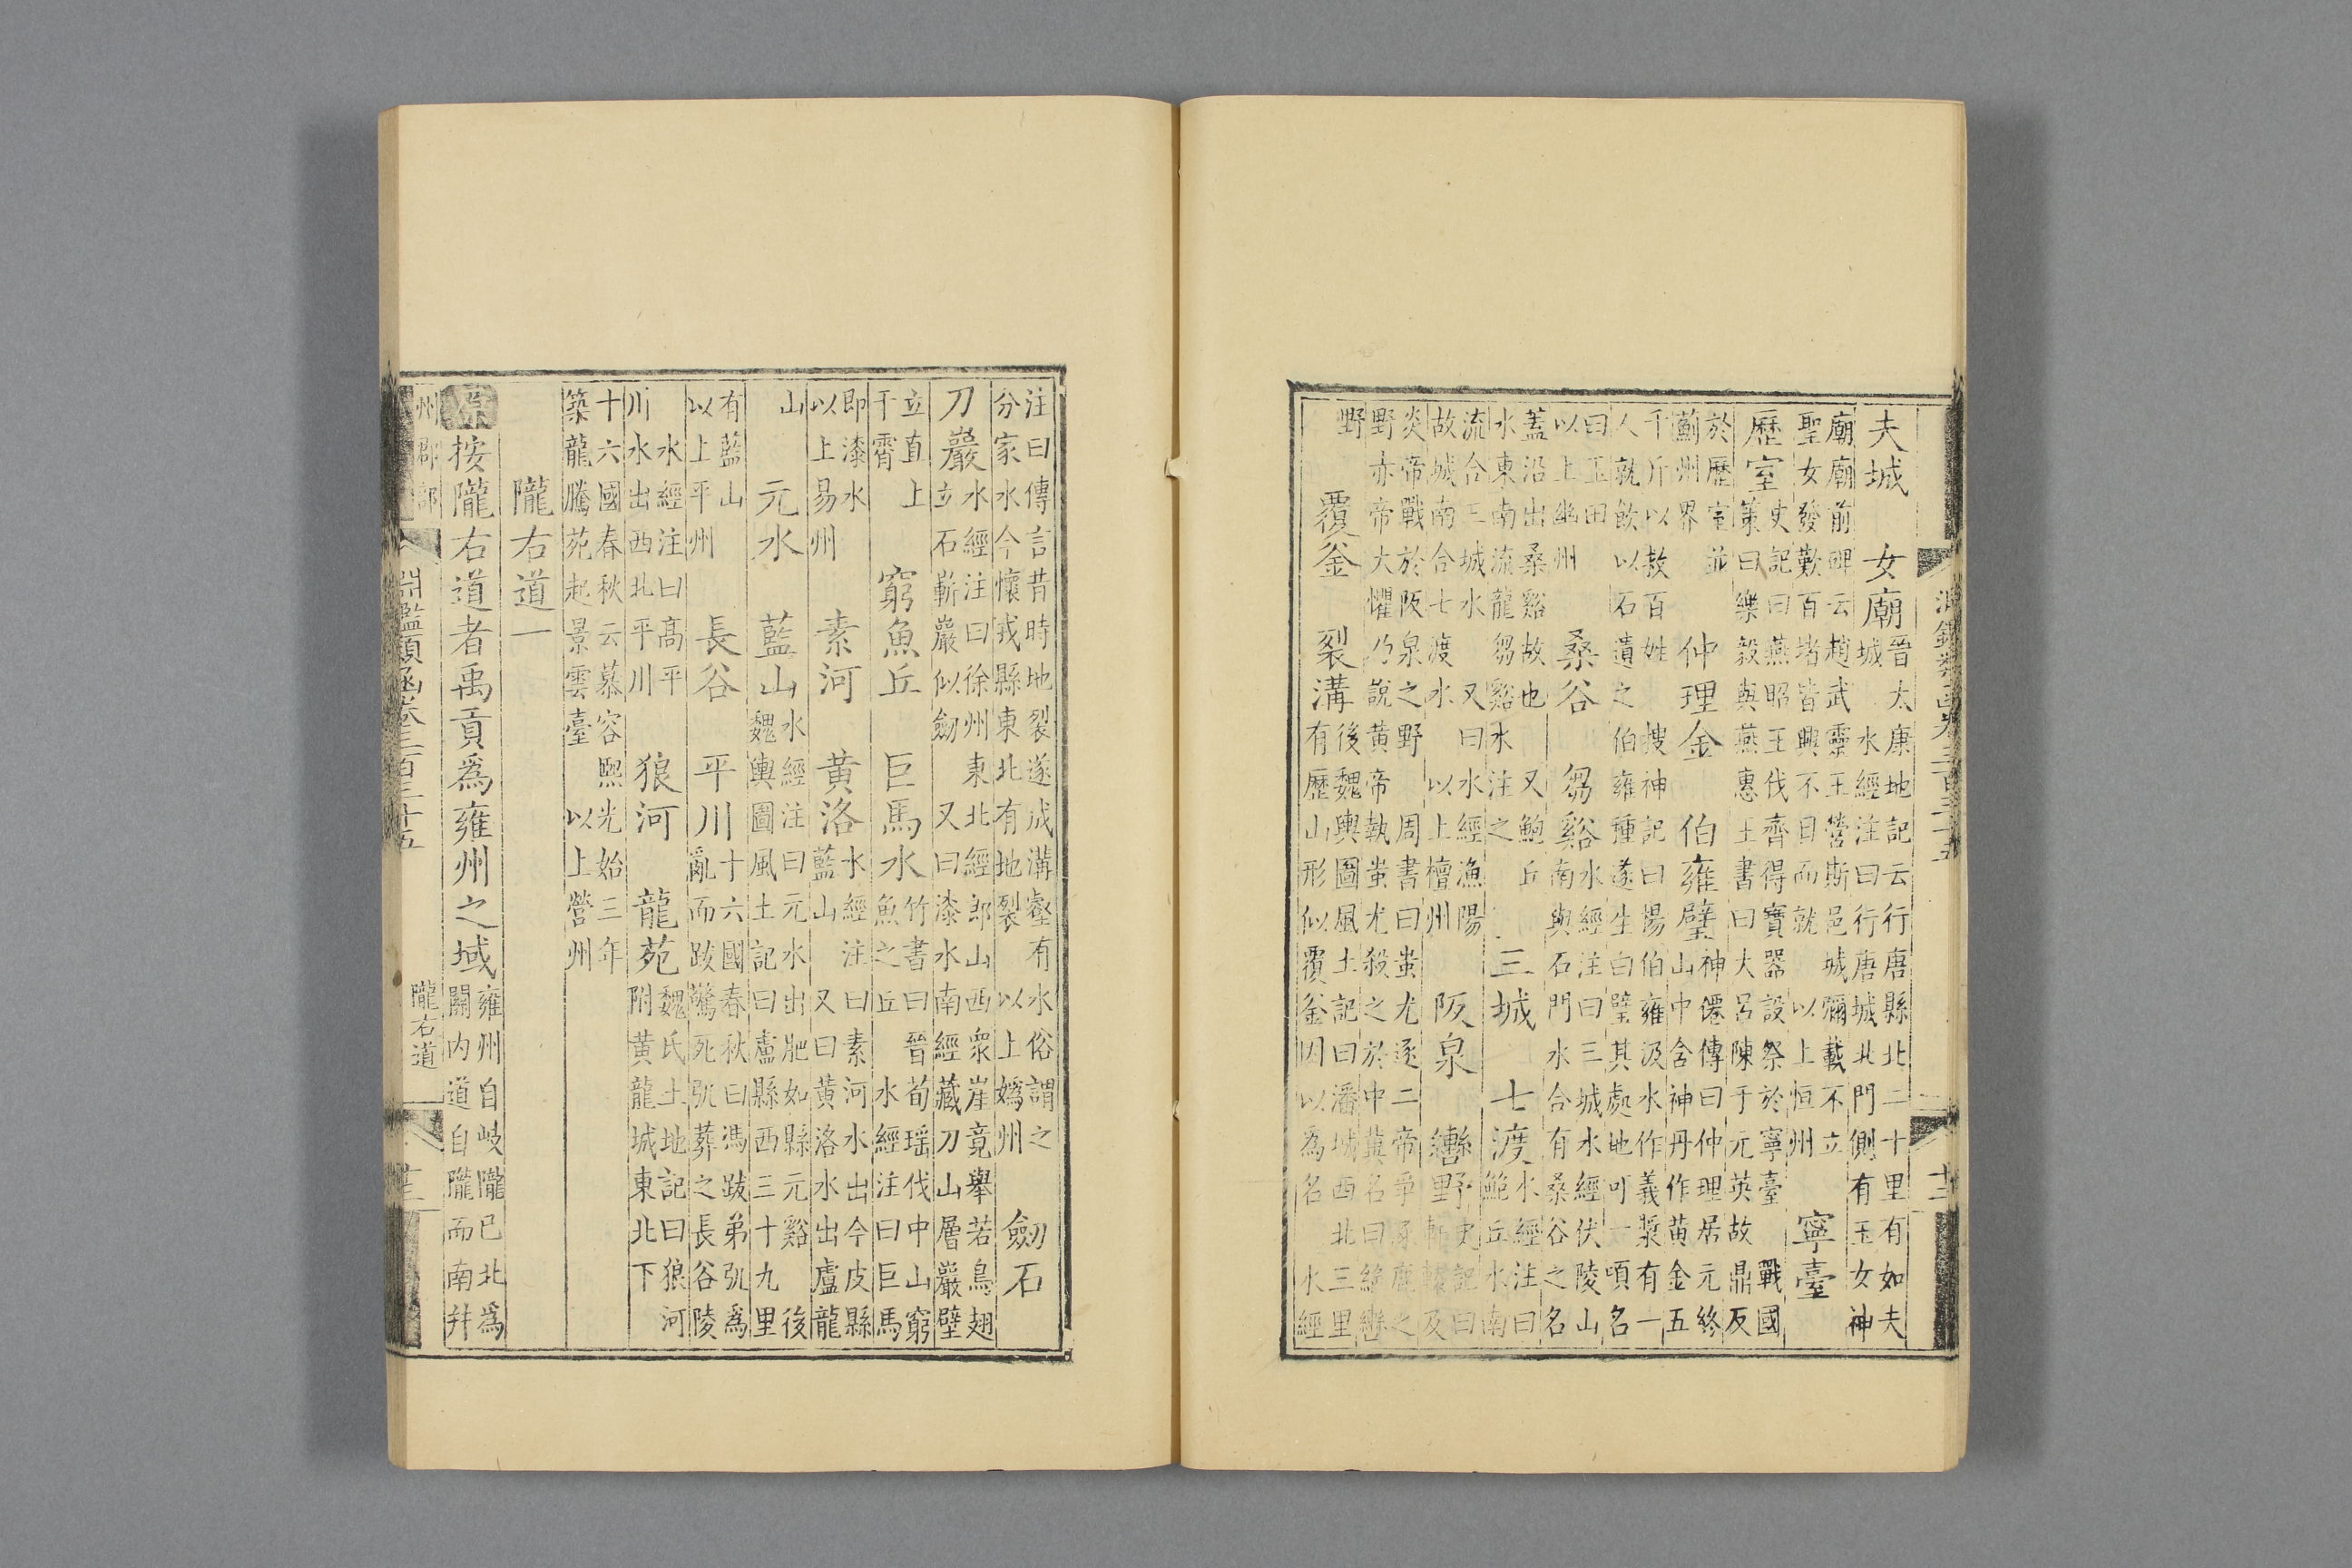 淵鑑類函卷三百三十五
夫城　女廟
晉太康地記云行唐縣北二十里有如夫
城　水經注曰行唐城北門側有玉女神
廟廟前碑云趙武靈王營斯邑城彌載不立
聖女發歎百堵皆興不日而就　以上恒州
寧臺
歷室
史記曰燕昭王伐齊得寶器設祭於寧臺　戰國
策曰樂毅與燕惠王書曰大呂陳于元英故鼎反
於歷室　並
薊州界
仲理金　伯雍璧
神僊傳曰仲理居元終
山中舍神丹作黃金五
千斤以救百姓　搜神記曰陽伯雍汲水作義漿有一
人就飲以石遺之　伯雍種遂生白璧其處地可一頃名
曰玉田
以上幽州
桑谷　芻谿
水經注曰三城水經伏陵山
南與石門水合有桑谷之名
蓋沿出桑谿故也　又鮑丘
水東南流龍芻谿水注之
三城　七渡
水經注曰
鮑丘水南
流合三城水　又曰水經漁陽
故城南合七渡水　以上檀州
阪泉　轡野
史記曰
軒轅及
炎帝戰於阪泉之野　周書曰蚩尤逐二帝爭涿鹿之
野亦帝大懼乃說黃帝執蚩尤殺之於中冀名曰絕轡
野
覆釜　裂溝
後魏輿圖風土記曰潘城西北三里
有歷山形似覆釜因以為名　水經
注曰傳言昔時地裂遂成溝壑有水俗謂之
分家水今懷戎縣東北有地裂　以上媯州
劒石
刀巖
水經注曰徐州東北經郎山西衆崖竟舉若鳥翅
立石嶄巖似劒　又曰漆水南經藏刀山層巖壁
立直上
干霄
窮魚丘　巨馬水
竹書曰晉荀瑤伐中山窮
魚之丘　水經注曰巨馬
即漆水
以上易州
素河　黃洛
水經注曰素河水出今皮縣
藍山　又曰黃洛水出盧龍
山
元水　藍山
水經注曰元水出肥如縣元谿　後
魏輿圖風土記曰盧縣西三十九里
有藍山
以上平州
長谷　平川
十六國春秋曰馮跋弟弘爲
亂而跋驚死弘葬之長谷陵
水經注曰高平
川水出西北平川
狼河　龍苑
魏氏土地記曰狼河
附黃龍城東北下
十六國春秋云慕容熙光始三年
築龍騰苑起景雲臺　以上營州
隴右道一
原　按隴右道者禹貢爲雍州之域
雍州自岐隴已北爲
關内道自隴而南幷
州郡部　淵鑑類函卷三百三十五　隴右道一